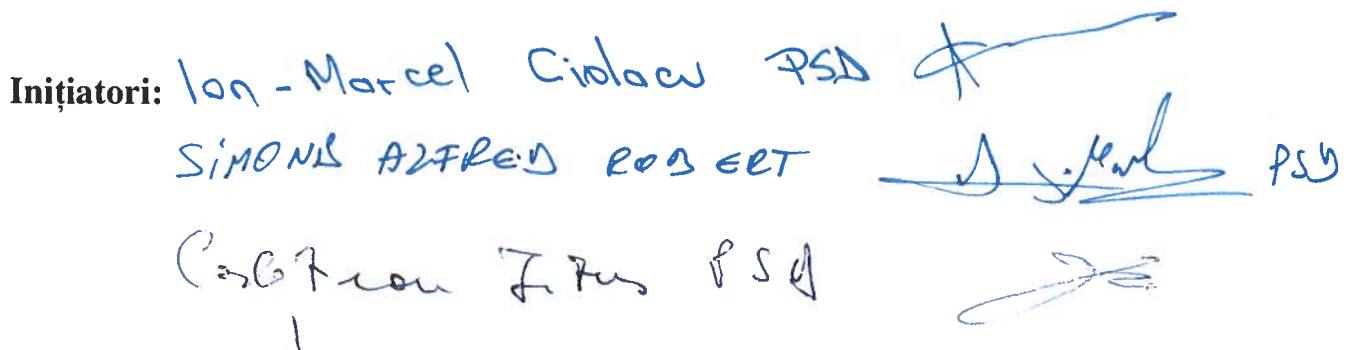 Inițiatori: Ion-Marcel Ciolacu PSD
SIMONIS ALFRED ROBERT PSD
Titus PSD